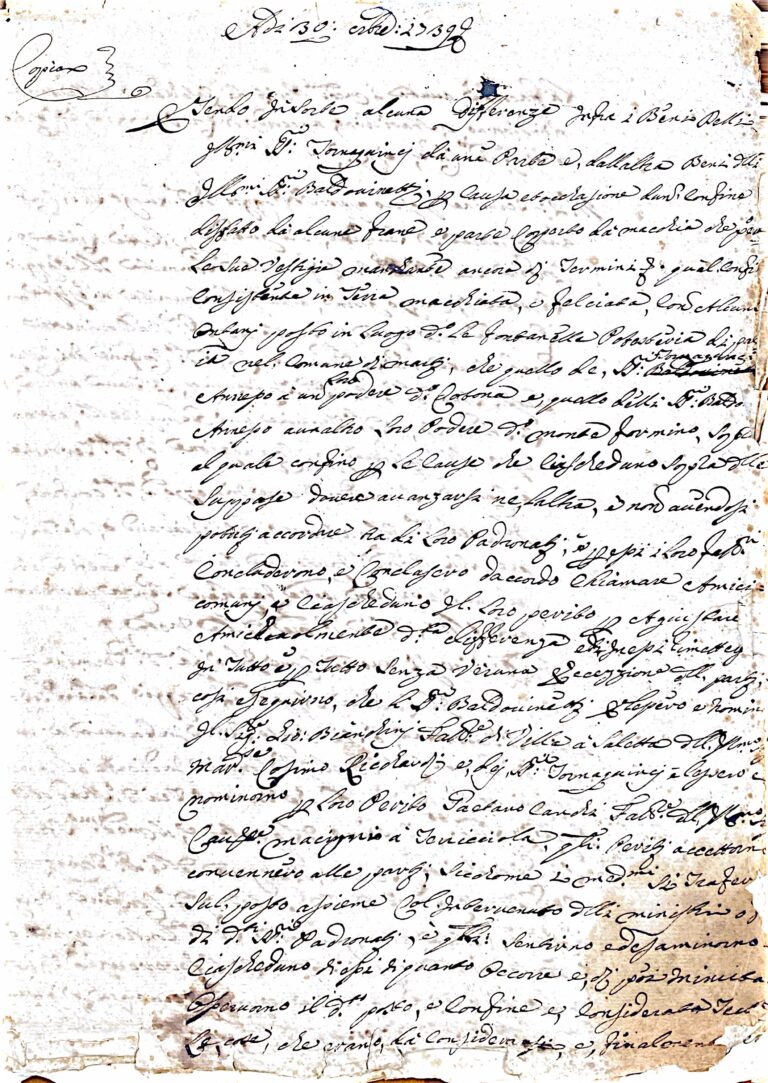 Adi 30: 8bre: 1739
Copia
Sendo insorte alcune Differenze infra i Beni Delli
Ill:mi SS:ri Tornaquinci da una Parte e, dall'altra Beni delli
Ill:mi SS:ri Baldovinetti, p causa et occasione d'un Confine
disfatto da alcune frane e parte Coperto da macchia che
le sue vestigia mancante ancora di Termini qual Confi
Consistente in Terra macchiata, e felciata, con Alcuni
Ontani posto in Luogo d:o Le fontanelle Potesteria di
nel Comune di marti, che quello de, SS:ri Tornaquinci
Annesso a un loro podere d:o Cotona e, quello delli SS:ri Baldo
Annesso a un altro Loro Podere d:o monte formino, sopra
al quale confino p le cause che Ciascheduno sopra
suppose dovere avanzarsi ne, l'altra, e non avendosi
potuti accordare tra di Loro Padronati, e p essi i Loro
Concluderono, e Conclusero d'accordo Chiamare Amici
comuni, e Ciascheduno il Loro perito p Agiustare
Amichevolmente d:ta differenza
di Tutto e p Tutto senza Veruna Eccezzione dell. parti,
così eseguirno, che li SS:ri Baldovinetti elessero e nomin
il Sig:re Gio: Bianchini Fatt:re di Ville a Saletta dell Ill:mo
Mar:se Cosimo Riccardi e, li SS:ri Tornaquinci elessero e
nominorno p Loro Perito Gaetano Landi Fatt:re dell Ill:mo
Cav:re macigni a Terricciola, quali Periti accettorno
convennero alle parti, sicome i med:mi si trasfer
sul posto assieme col intervenuto delli ministri
di d:ti SS:ri Padronati, e quali sentirno ed esaminorno
Ciascheduno di essi di quanto occorre e, di poi
Osservorno il d:to posto, e Confine e, Considerate
le, cose, che erano, da Considerarsi, e, finalmente